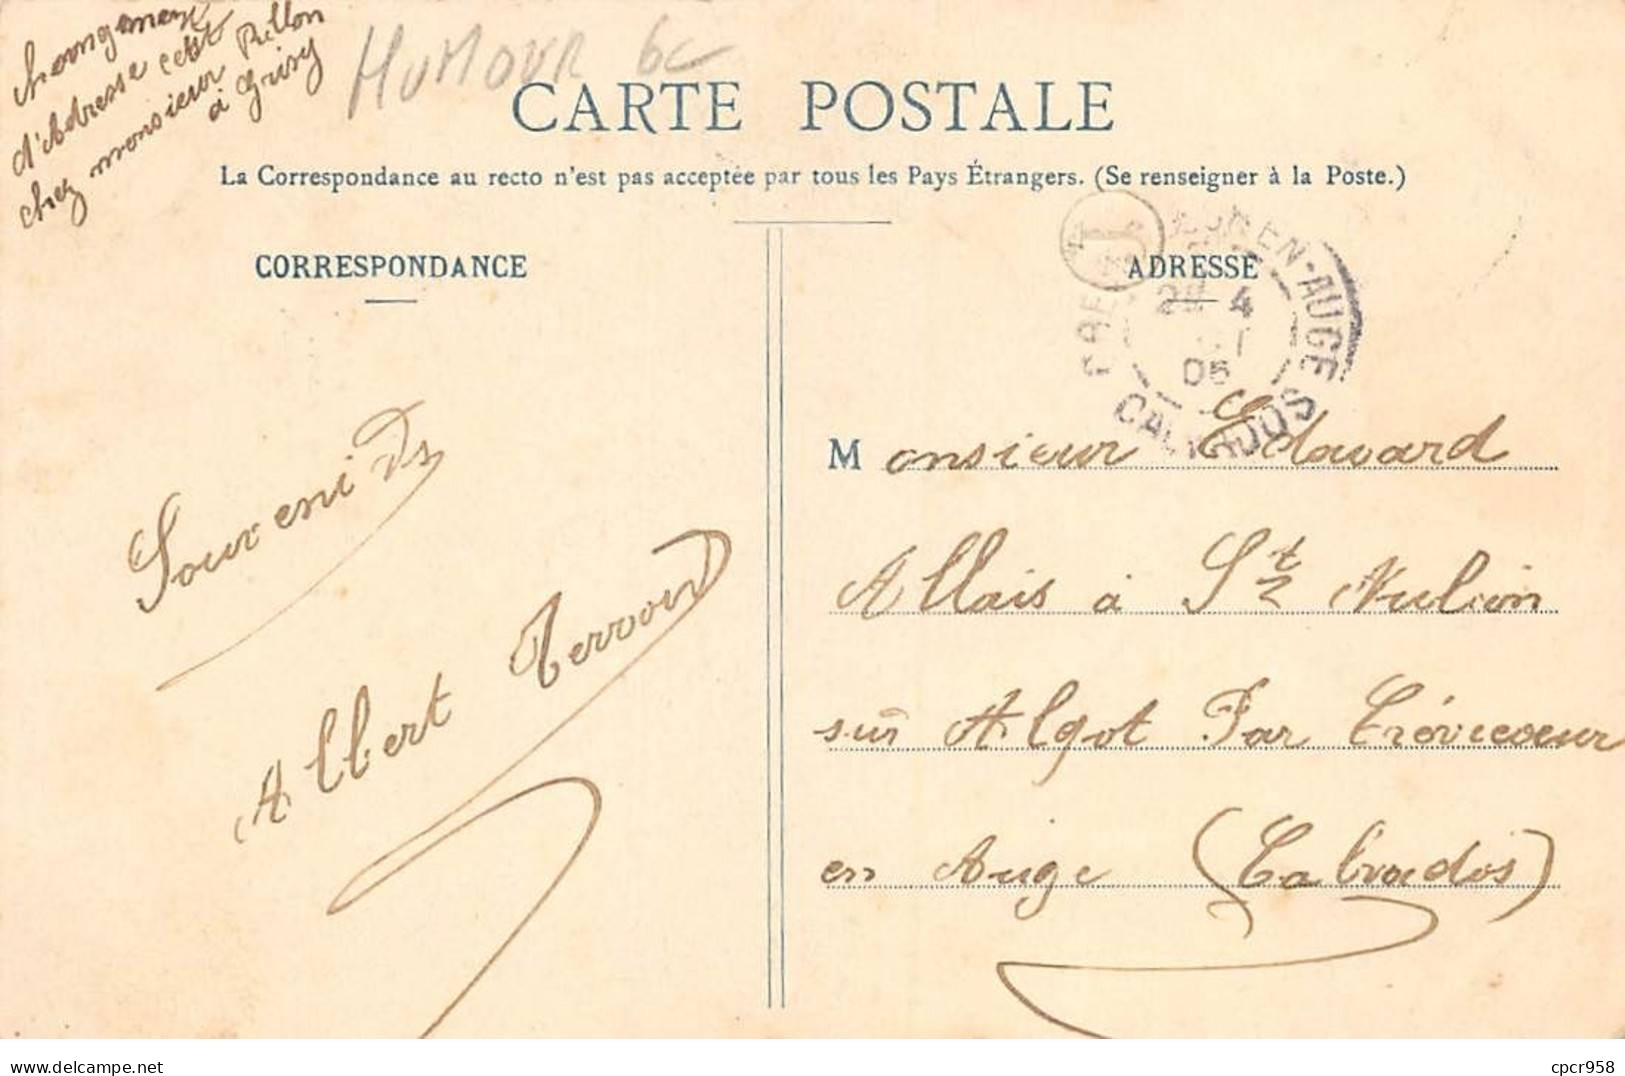 changement
d'Adresse cest
chez monsieur Pillon
à Grisy
HUMOUR 6C
CARTE POSTALE
La Correspondance au recto n'est pas acceptée par tous les Pays Étrangers. (Se renseigner à la Poste.)
CORRESPONDANCE
ADRESSE
EN-AUGE
28 4
05
CALVADOS
Souveni Ds
Albert
Monsieur Edouard
Allais à St
sur Algot Par Crévecoeur
en Auge (Calvados)
delcampe.net
cpcr958